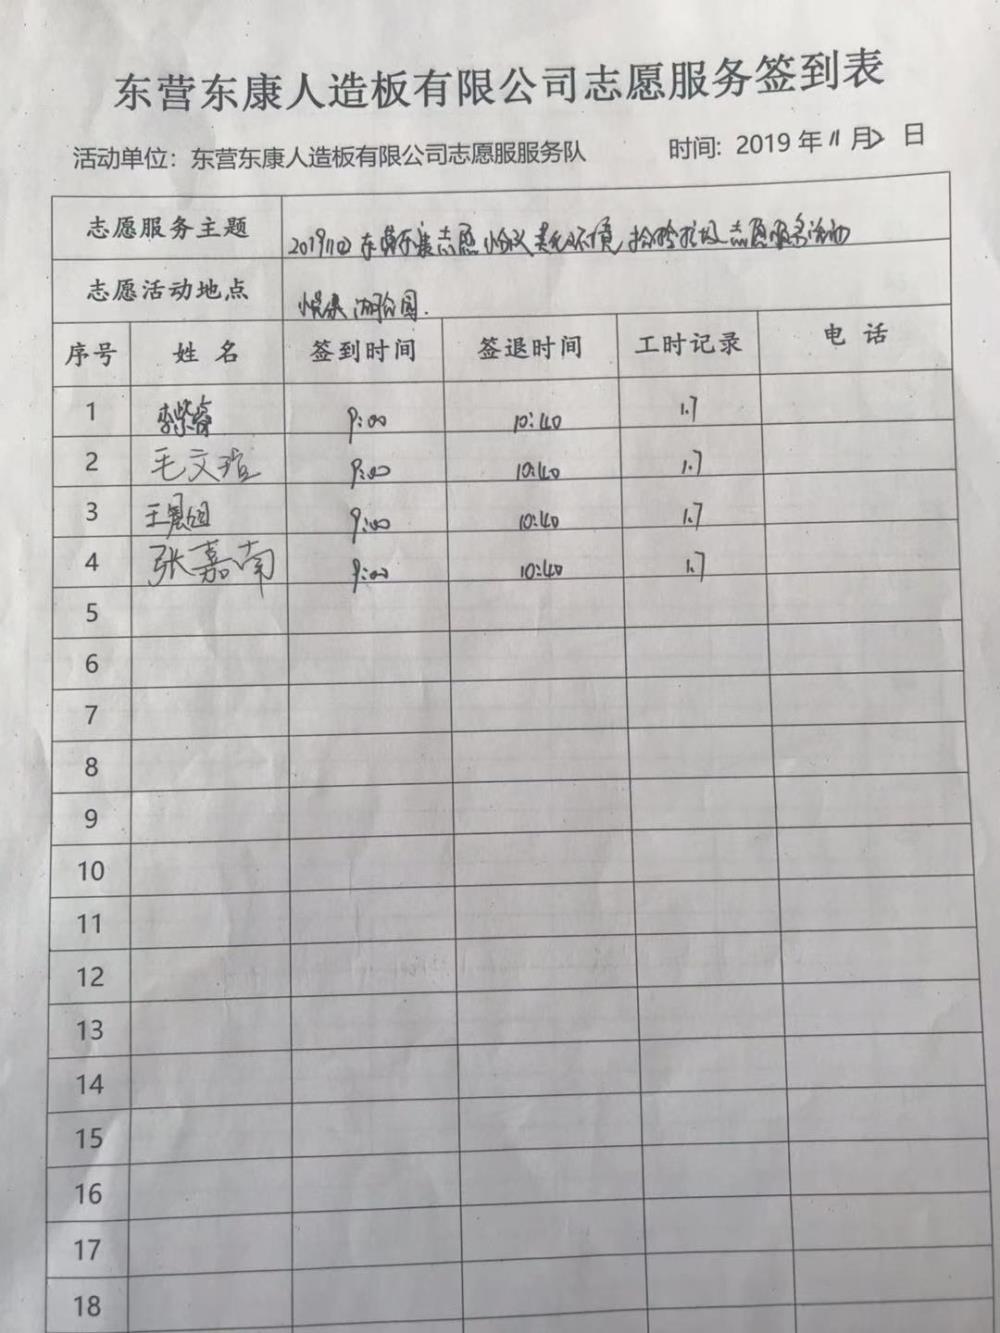 东营东康人造板有限公司志愿服务签到表
活动单位：东营东康人造板有限公司志愿服服务队 时间: 2019 年 11 月 2 日
志愿服务主题 20191102 东营东康志愿 美化环境 捡拾垃圾 志愿服务活动
志愿活动地点 悦来湖公园.
序号 姓 名 签到时间 签退时间 工时记录 电 话
1 李紫睿 9:00 10:40 1.7
2 毛文瑄 9:00 10:40 1.7
3 王晨 9:00 10:40 1.7
4 张嘉南 9:00 10:40 1.7
5
6
7
8
9
10
11
12
13
14
15
16
17
18